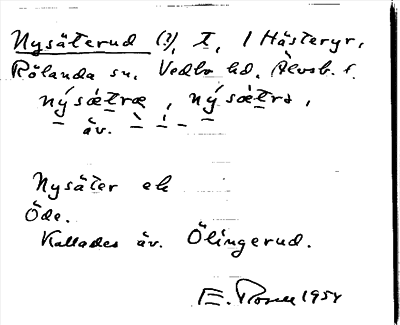 Nysäterud (?), T, 1 Hästeryr,
Rölanda sn, Vedbo hd, Älvsb. l.
nýsætræ, nýsætrə,
äv.
Nysäter ek
Öde.
Kallades äv. Ölingerud.
E. Rosell 1954